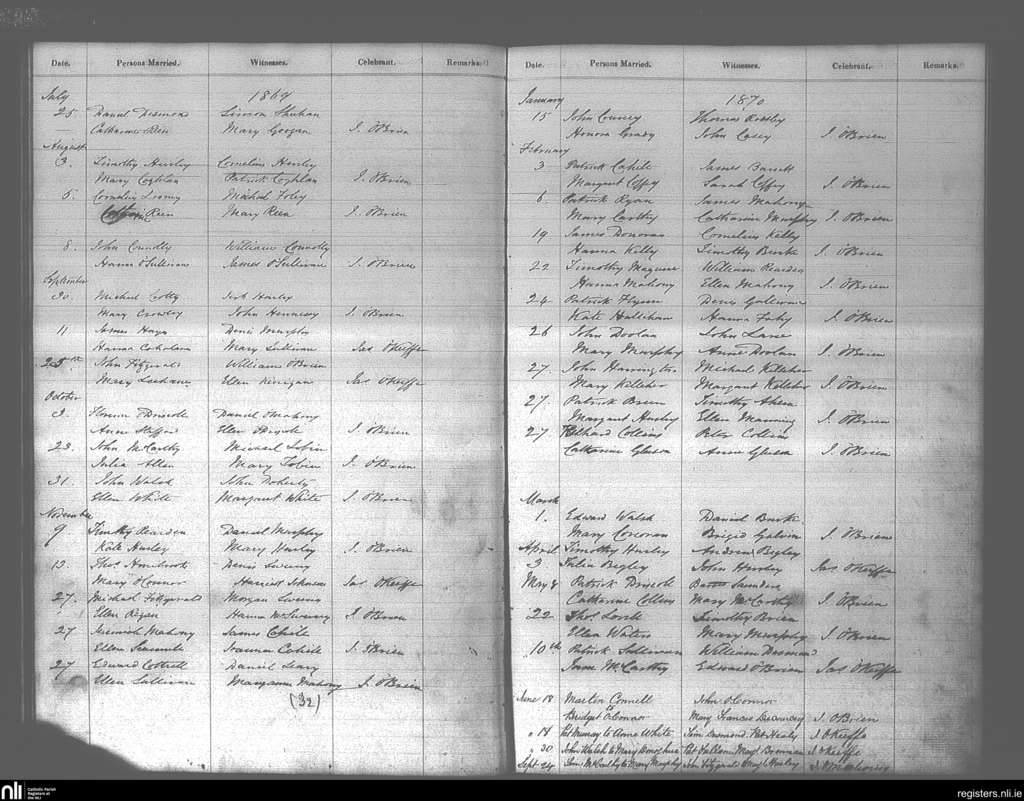 Date. Persons Married. Witnesses. Celebrant. Remarks.
July 1869
25 Daniel Desmond
Catharine Reen Mary Gorgan J. O'Brien
August
3. Timothy Hurley Cornelius Hurley
Mary Coghlan Patrick Coghlan J. O'Brien
5. Cornelius Michael Foley
Reen Mary Reen J. O'Brien
8. John Connolly William Connolly
Hanna O'Sullivan James O'Sullivan J. O'Brien
September
30. Michael Hurley
Mary Crowley John Hennessy J. O'Brien
11 James Hayes Denis Murphy
Hanna Mary Sullivan Jas O'Keeffe
25th John Fitzgerald William O'Brien
Mary Ellen Kerrigan Jas O'Keeffe
October
3. Florence O'Driscoll Daniel O'Mahony
Anne Ellen J. O'Brien
23. John McCarthy Michael Tobin
Julia Allen Mary Tobin J. O'Brien
31. John Walsh John Doherty
Ellen White Margaret White J. O'Brien
November
9. Timothy Rearden Daniel Murphy
Kate Hurley Mary Hurley J. O'Brien
13. Thos. Denis Sweeny
Mary O'Connor Harriet Johnson Jas. O'Keeffe
27. Michael Fitzgerald Morgan Sweeny
Ellen Regan Hanna McSweeny J. O'Brien
27 Jeremiah Mahony James Cahill
Ellen Joanna Cahill J. O'Brien
27 Edward Cottrell Daniel Leary
Ellen Sullivan Maryanne Mahony J. O'Brien
(32)
Date. Persons Married. Witnesses. Celebrant. Remarks.
January 1870
15 John Thomas
Honora Grady John Casey J. O'Brien
February
3 Patrick Cahill James Barrett
Margaret Coffey Sarah Coffey J. O'Brien
6. Patrick Ryan James Mahony
Mary Carthy Catharine Murphy J. O'Brien
19 James Donovan Cornelius Kelly
Hanna Kelly Timothy Burke J. O'Brien
22 Timothy Maguire William Rearden
Hanna Mahony Ellen Mahony J. O'Brien
24 Patrick Flynn Denis
Kate Hallihan Hanna J. O'Brien
26 John Doolan John Lane
Mary Murphy Anne Doolan J. O'Brien
27. John Harrington Michael Kelleher
Mary Kelleher Margaret Kelleher J. O'Brien
27. Patrick Breen Timothy Ahern
Margaret Hurley Ellen Manning J. O'Brien
27 Richard Collins Peter Collins
Catharine Gleeson Anne Gleeson J. O'Brien
March
1. Edward Walsh Daniel Burke
Mary Brigid Galvin J. O'Brien
April Timothy Hurley Andrew Begley
3 Julia Begley John Hurley Jas O'Keeffe
May 8 Patrick Driscoll Saunders
Catharine Collins Mary McCarthy J. O'Brien
22 Thos. Timothy Brien
Ellen Waters Mary Murphy J. O'Brien
10th Patrick Sullivan William Desmond
Jane McCarthy Edward O'Brien Jas O'Keeffe
June 18 Martin Connell John O'Connor
to
Bridget O'Connor Mary Frances J. O'Brien
" 18 Pat Murray to Anne White Tim Desmond. Pat Healy J. O'Keeffe
" 30 John Walsh to Mary Donoghue Pat Hallam Margt Brennan J. O'Keeffe
Sept 24 McCarthy to Mary Murphy Jon Fitzgerald Margt Hurley
nli
Catholic Parish
Registers at
the NLI
registers.nli.ie